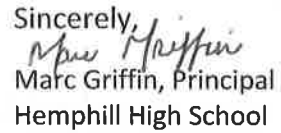 Sincerely,
Marc Griffin
Marc Griffin, Principal
Hemphill High School